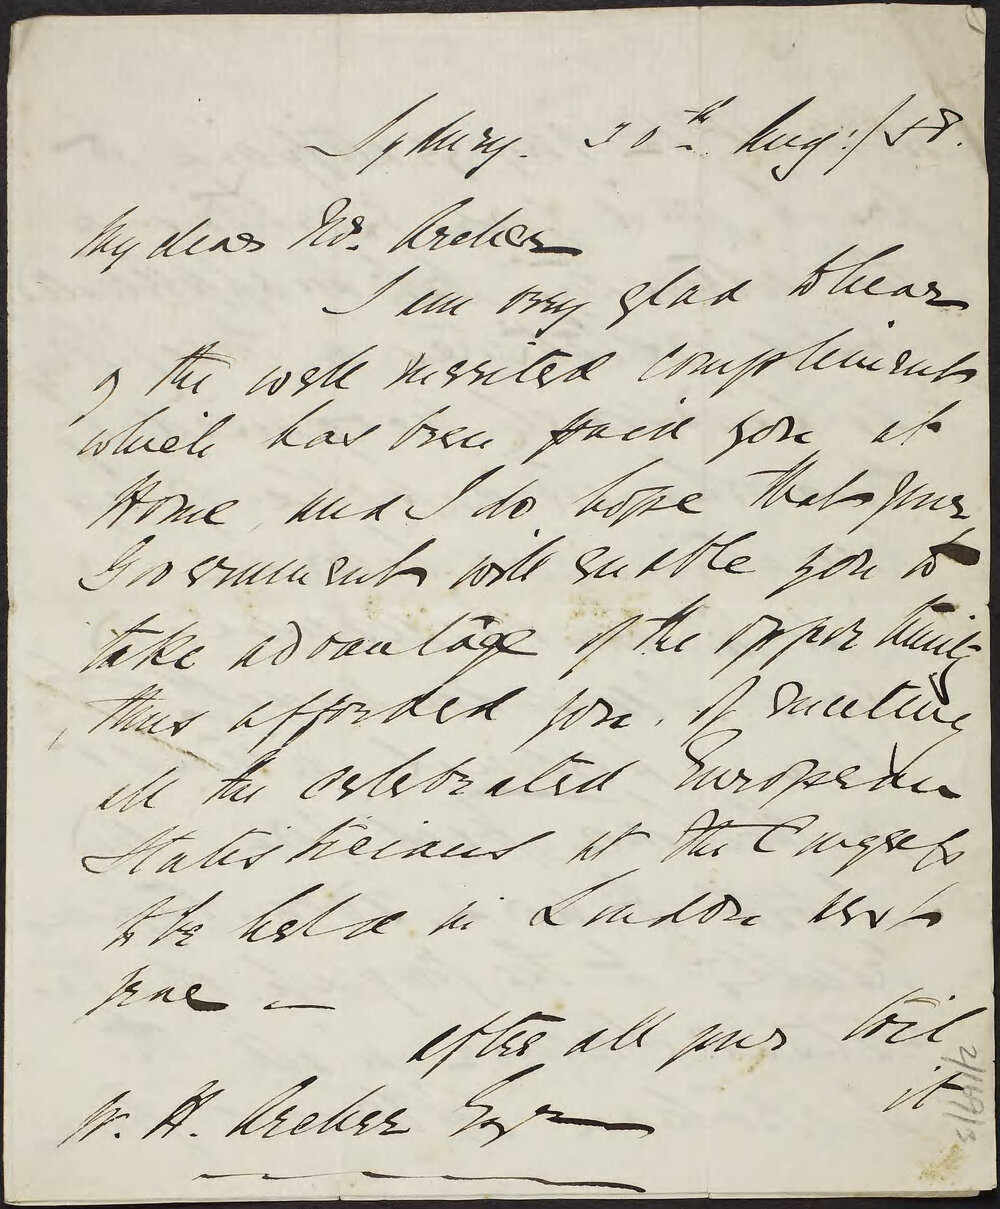 Sydney. 30th Aug:/58.
My dear Mr. Archer
I am very glad to hear
of the well merited compliment
which has been paid you at
Home and I do hope that your
Government will enable you to
take advantage of the opportunity
thus afforded you. of meeting
all the celebrated European
Statisticians at the Congress
to be held in London next
year —
after all your toil
it
W. H. Archer Esqr
2/169/3